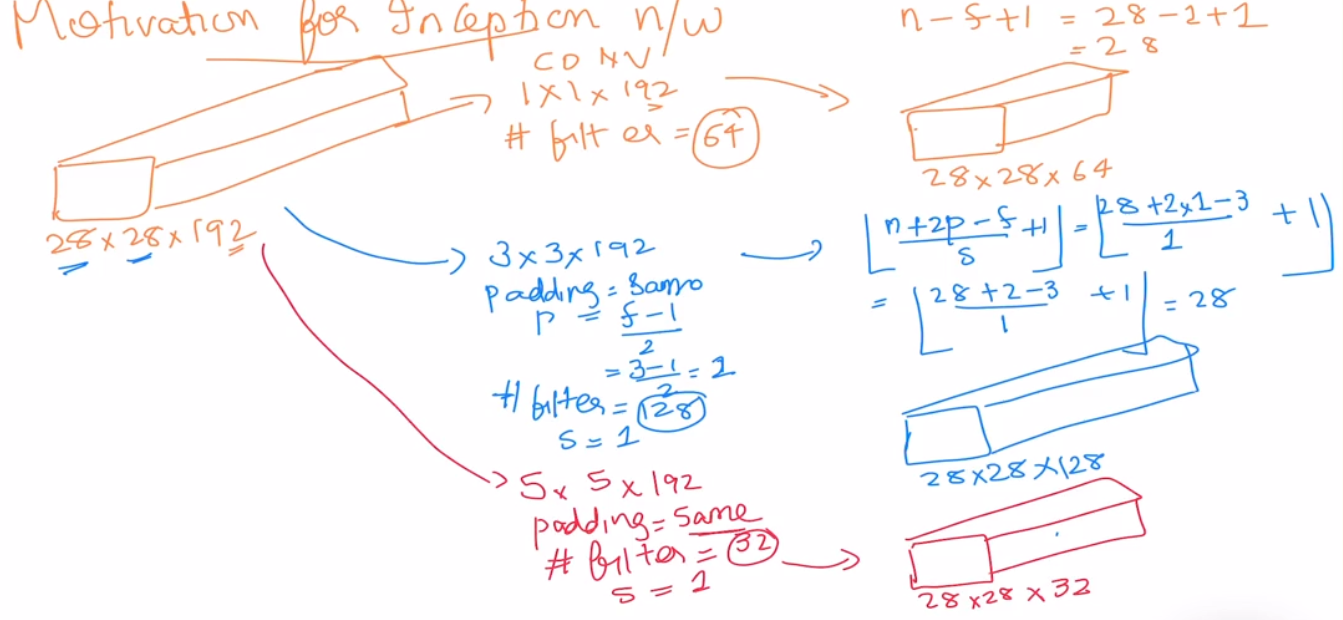 Motivation for Inception n/w
n - f + 1 = 28 - 1 + 1
= 28
CONV
1 x 1 x 192
# filter = 64
28 x 28 x 64
28 x 28 x 192
3 x 3 x 192
padding = Same
P = f - 1 / 2
= 3 - 1 / 2 = 1
# filter = 128
s = 1
⌊ n + 2p - f / s + 1 ⌋ = ⌊ 28 + 2 x 1 - 3 / 1 + 1 ⌋
= ⌊ 28 + 2 - 3 / 1 + 1 ⌋ = 28
28 x 28 x 128
5 x 5 x 192
padding = Same
# filter = 32
s = 1
28 x 28 x 32